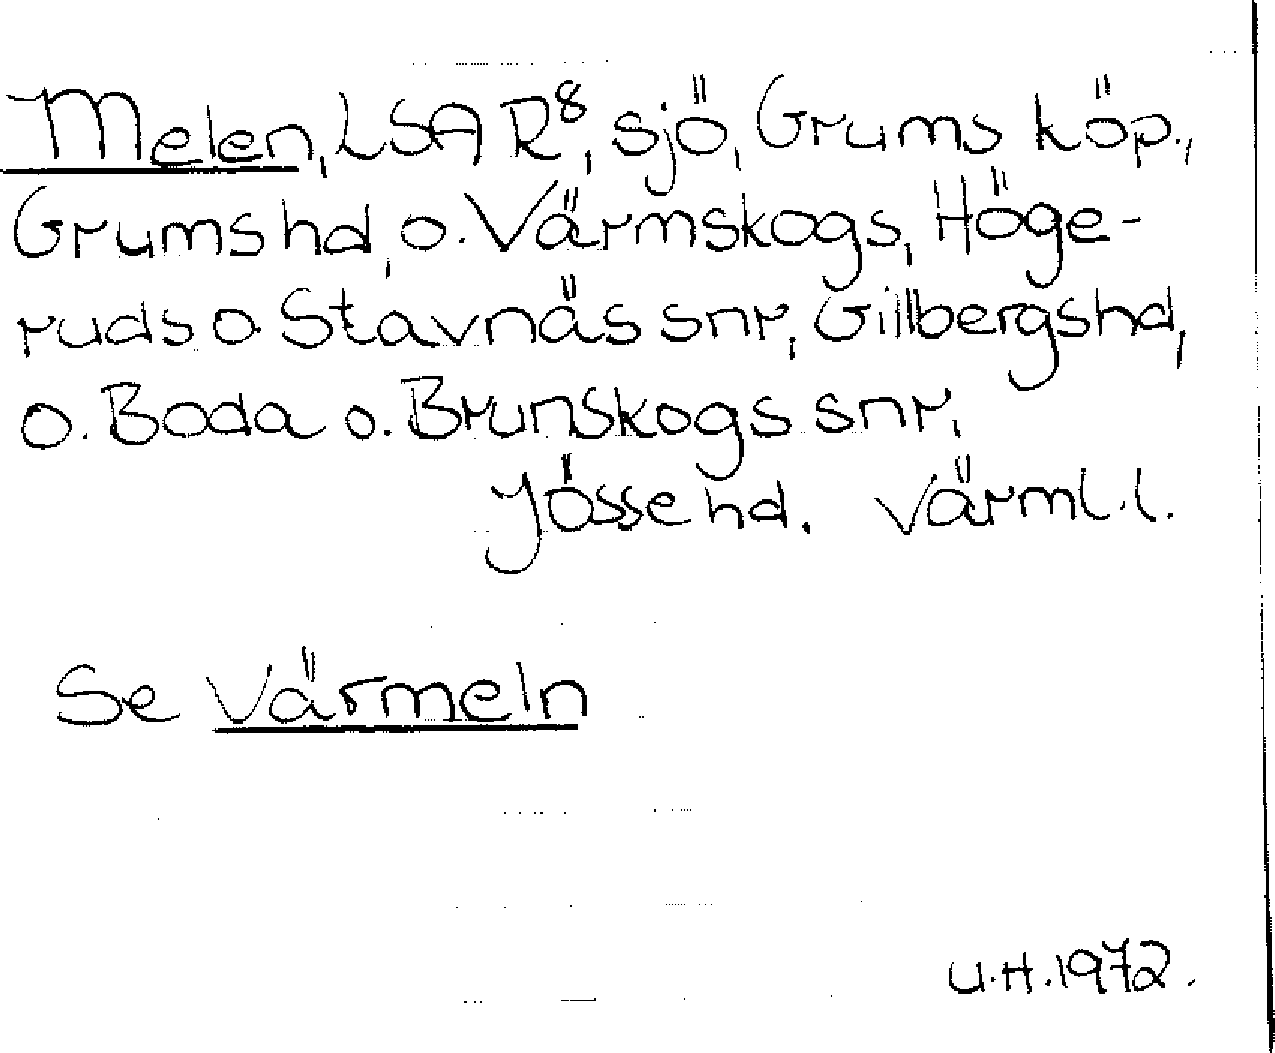 Melen, LSA R⁸, sjö, Grums köp.,
Grums hd, o. Värmskogs, Höge-
ruds o. Stavnäs snr, Gillbergs hd,
o. Boda o. Brunskogs snr,
Jösse hd. Värml. l.
Se Värmeln
U.H. 1972.